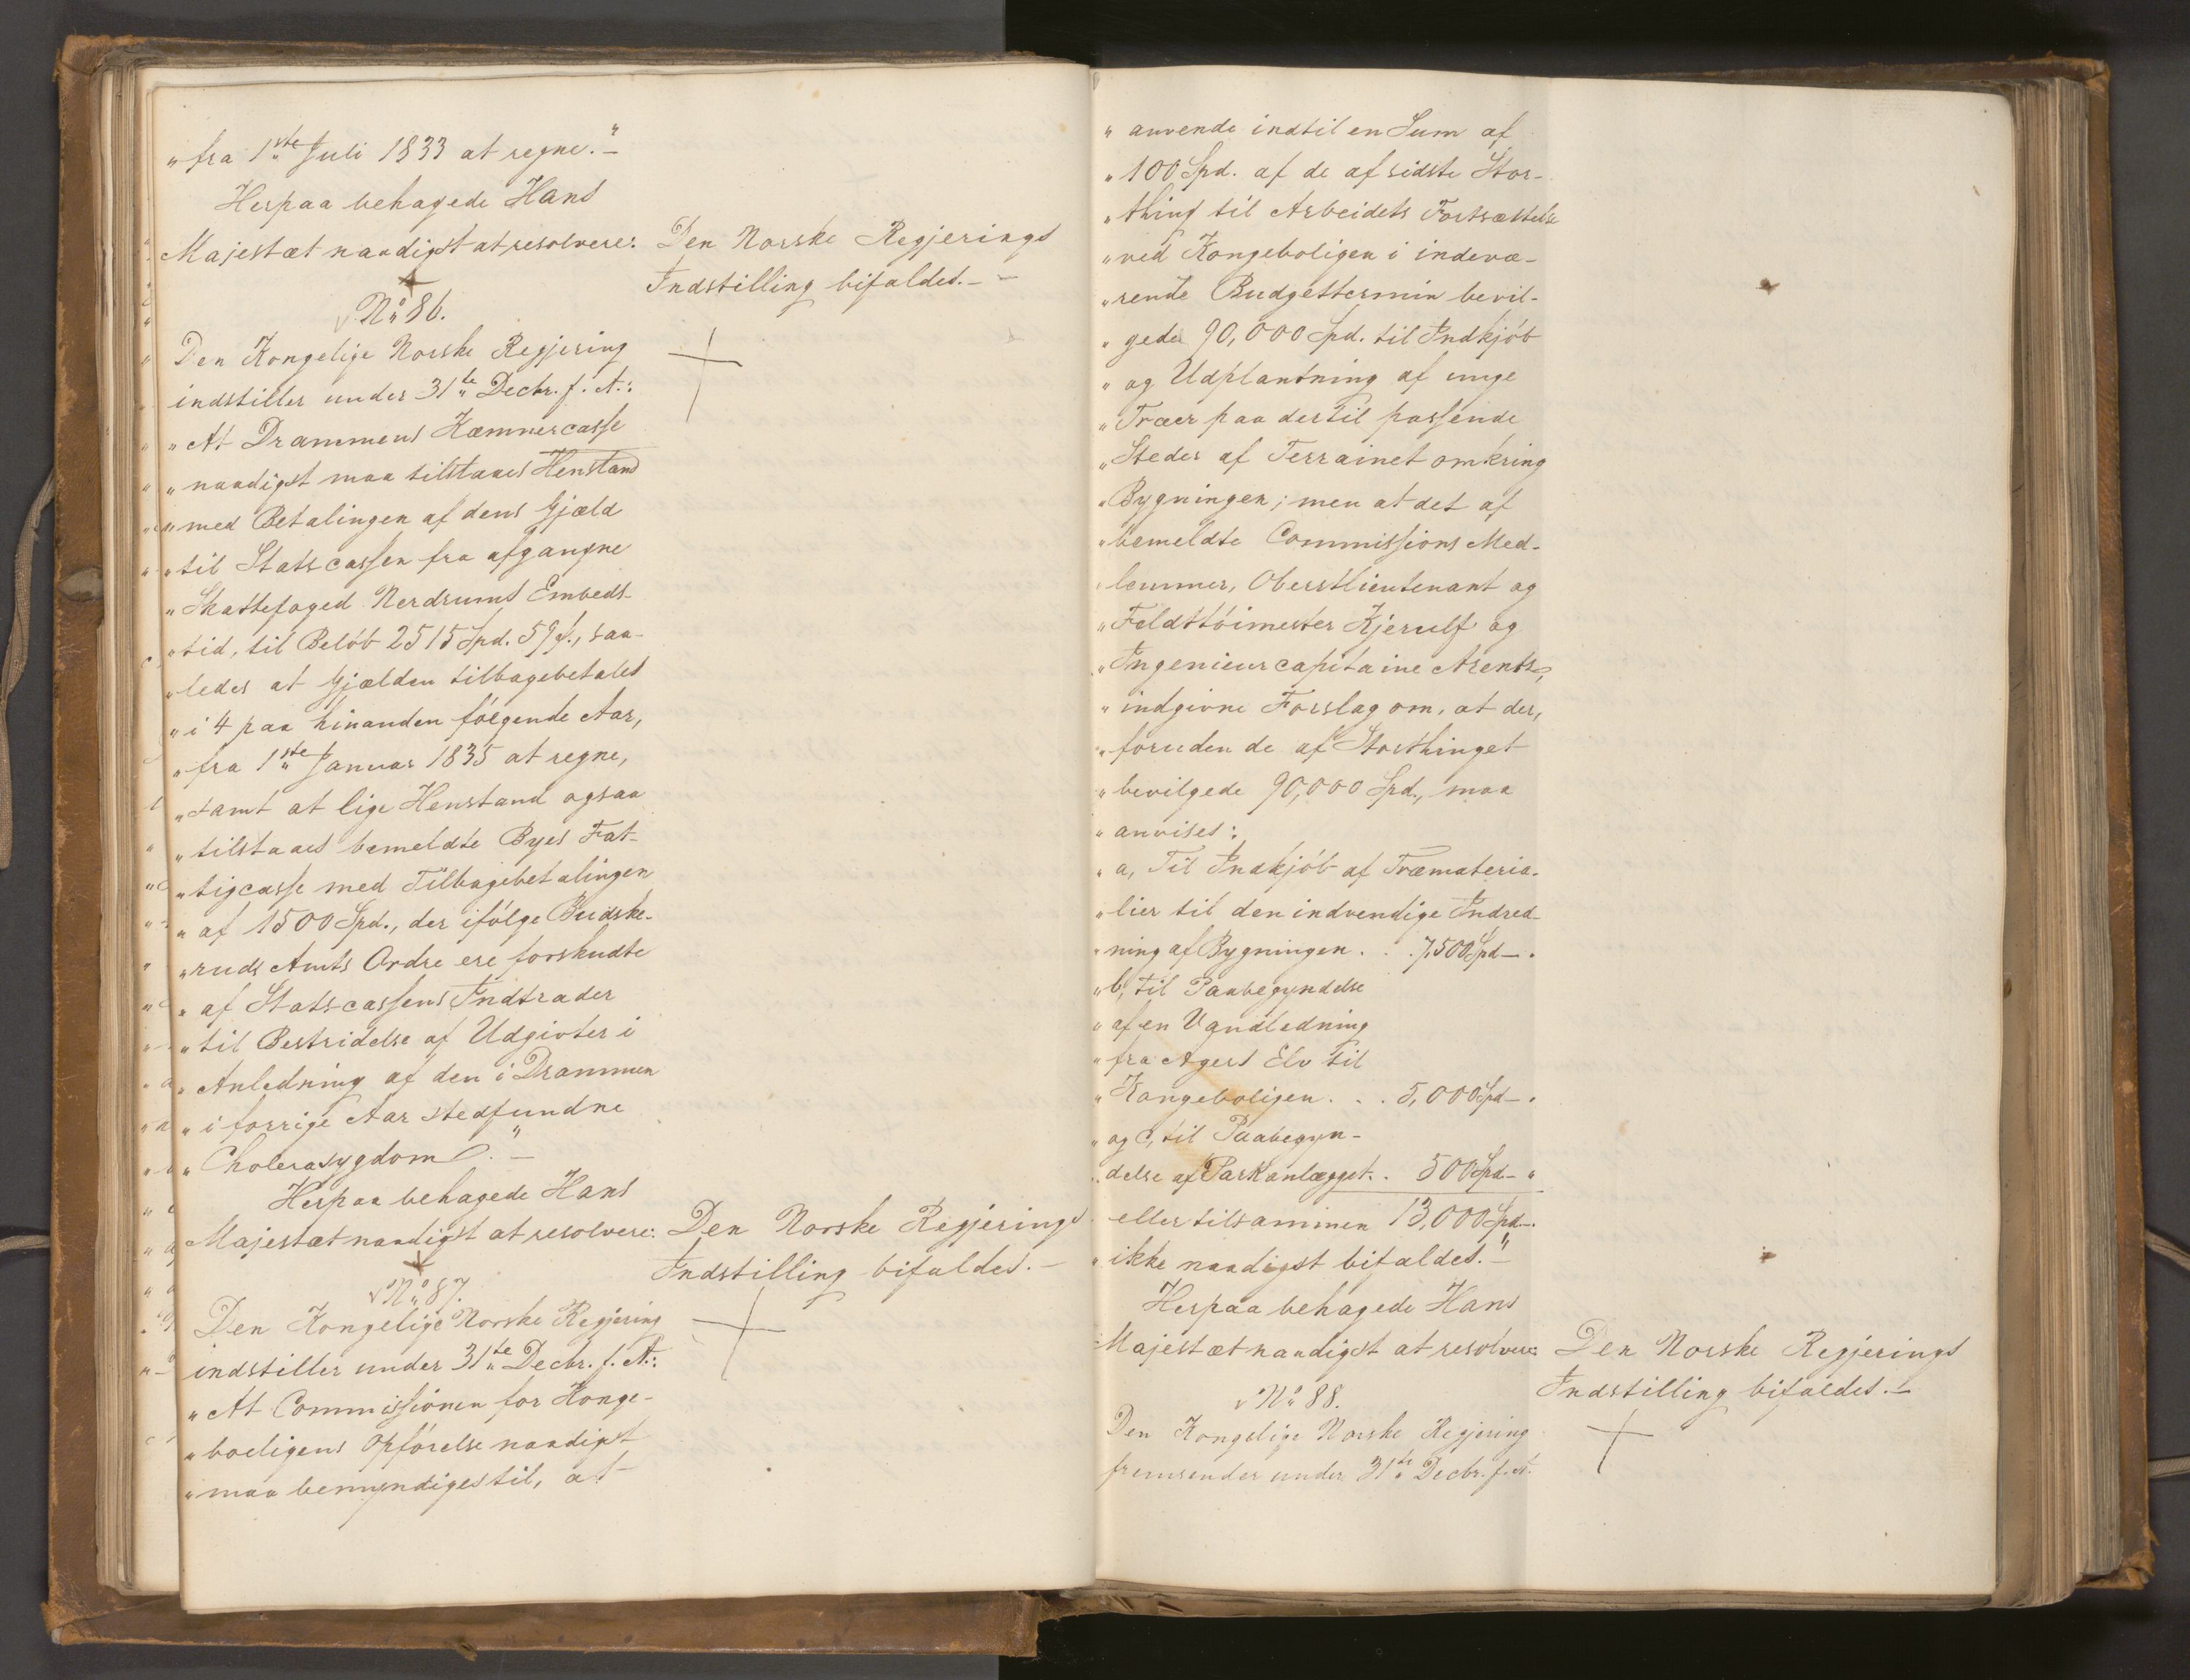 „fra 1ste Juli 1833 at regne.“ –
Herpaa behagede Hans
Majestæt naadigst at resolvere:
Den Norske Regjerings
Indstilling bifaldes. –
No 86.
Den Kongelige Norske Regjering
indstiller under 31te Decbr. f. A.:
„At Drammens Kæmnercasse
„naadigst maa tilstaaes Henstand
„med Betalingen af dens Gjæld
„til Statscassen fra afgangne
„Skattefoged Nerdrums Embeds-
„tid, til Beløb 2515 Spd. 59 ß., saa-
„ledes at Gjælden tilbagebetales
„i 4 paa hinanden følgende Aar,
„fra 1ste Januar 1835 at regne,
„samt at lige Henstand ogsaa
„tilstaaes bemeldte Byes Fat-
„tigcasse med Tilbagebetalingen
„af 1500 Spd., der ifølge Budske-
„ruds Amts Ordre ere forskudte
„af Statscassens Indtrader
„til Bestridelse af Udgivter i
„Anledning af den i Drammen
„i forrige Aar stedfundne
„Cholerasygdom“. –
Herpaa behagede Hans
Majestæt naadigst at resolvere:
Den Norske Regjerings
Indstilling bifaldes. –
No 87.
Den Kongelige Norske Regjering
indstiller under 31te Decbr. f. A.:
„At Commissionen for Konge-
„boeligens Opførelse naadigst
„maa bemyndiges til, at
„anvende indtil en Sum af
„100 Spd. af de af sidste Stor-
„thing til Arbeidets Fortsættelse
„ved Kongeboligen i indevæ-
„rende Budgettermin bevil-
„gede 90,000 Spd. til Indkjøb
„og Udplantning af unge
„Træer paa dertil passende
„Steder af Terrainet omkring
„Bygningen; men at det af
„bemeldte Commissions Med-
„lemmer, Oberstlieutenant og
„Feldttøimester Kjerulf og
„Ingenieurcapitaine Arentz,
„indgivne Forslag om, at der,
„foruden de af Storthinget
„bevilgede 90,000 Spd., maa
„anvises:
„a, Til Indkjøb af Træmateria-
„lier til den indvendige Indred-
„ning af Bygningen . . . 7,500 Spd – .
„b, til Paabegyndelse
„af en Vandledning
„fra Agers Elv til
„Kongeboligen . . . 5,000 Spd – .
„og c, til Paabegyn-
„delse af Parkanlægget . . 500 Spd – „
„eller tilsammen 13,000 Spd – .
„ikke naadigst bifaldes.“ –
Herpaa behagede Hans
Majestæt naadigst at resolvere:
Den Norske Regjerings
Indstilling bifaldes. –
No 88.
Den Kongelige Norske Regjering
fremsender under 31te Decbr. f. A.